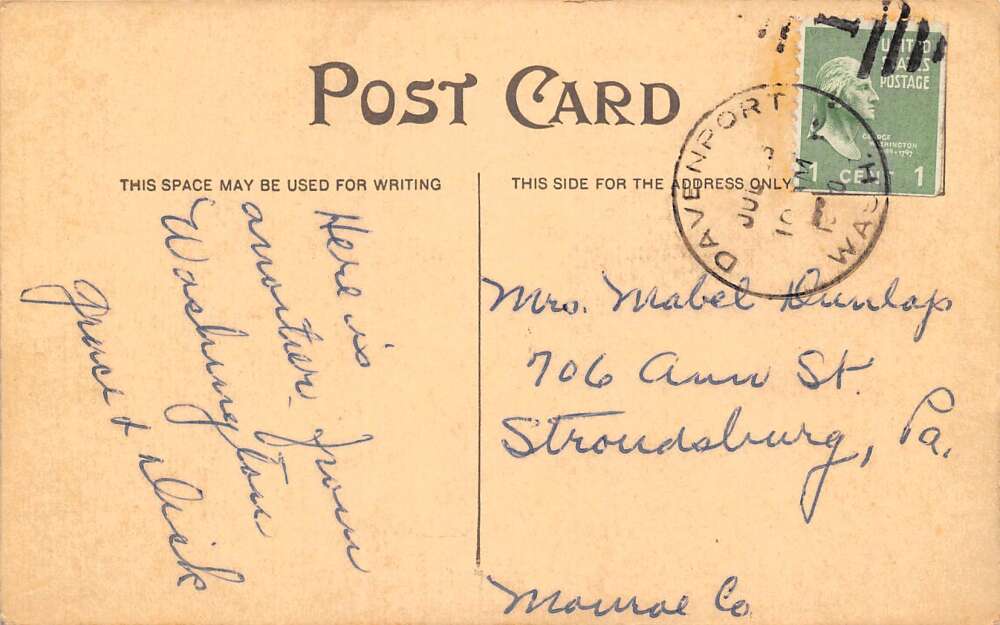 POST CARD
THIS SPACE MAY BE USED FOR WRITING
THIS SIDE FOR THE ADDRESS ONLY
UNITED
STATES
POSTAGE
GEORGE
WASHINGTON
1 CENT 1
DAVENPORT
WASH.
JUL
Here is
another from
Washington
Grace & Dick
Mrs. Mabel Dunlap
706 Ann St.
Stroudsburg, Pa.
Monroe Co